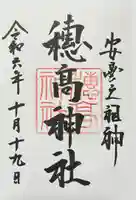 安曇之祖神
穂髙神社
令和六年十月十九日